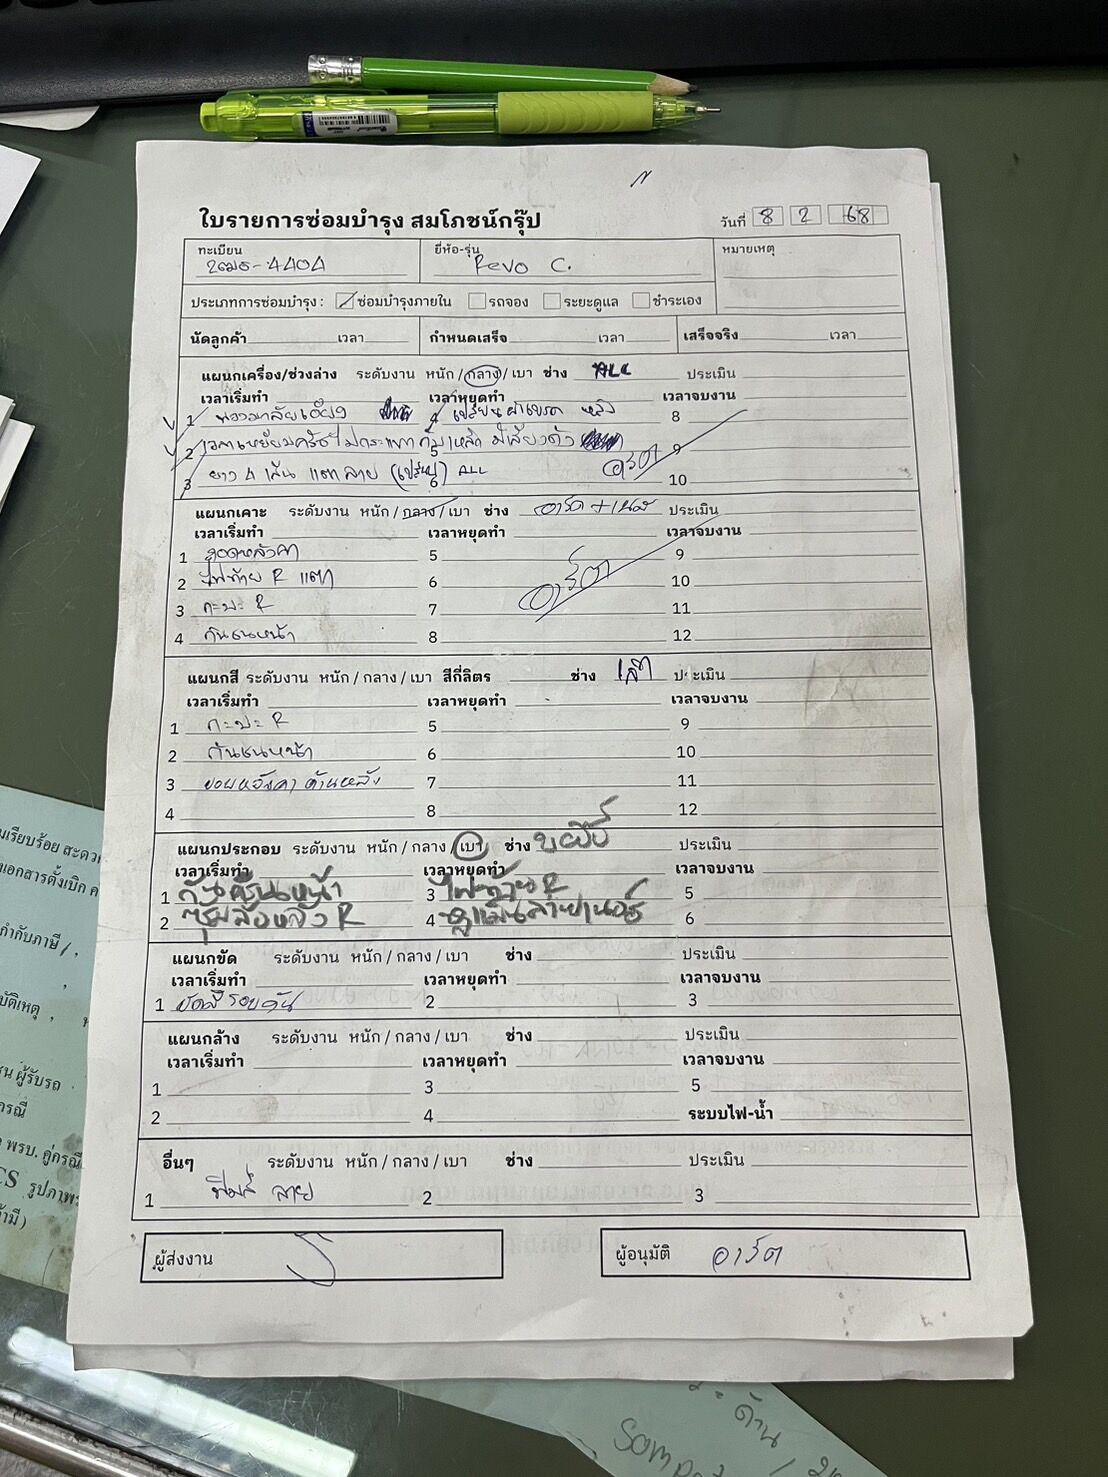 ใบรายการซ่อมบำรุง สมโภชน์กรุ๊ป
วันที่ 8 2 68
ทะเบียน
ยี่ห้อ-รุ่น
หมายเหตุ
2ฒธ-4404
Revo C.
ประเภทการซ่อมบำรุง : ซ่อมบำรุงภายใน รถจอง ระยะดูแล ชำระเอง
นัดลูกค้า เวลา กำหนดเสร็จ เวลา เสร็จจริง เวลา
แผนกเครื่อง/ช่วงล่าง ระดับงาน หนัก / กลาง / เบา ช่าง ALL ประเมิน
เวลาเริ่มทำ เวลาหยุดทำ เวลาจบงาน
1 พวงมาลัยเอียง 4 เปลี่ยนผ้าเบรค หลัง 8
2 เวลาเหยียบครัช 5 มีเสียงดัง 9
3 ยาง 4 เส้น แตกลาย (เปลี่ยน) ALL 6 10
อาร์ต
แผนกเคาะ ระดับงาน หนัก / กลาง / เบา ช่าง อาร์ต + ประเมิน
เวลาเริ่มทำ เวลาหยุดทำ เวลาจบงาน
1 5 9
2 ไฟท้าย R แตก 6 10
3 กะบะ R 7 11
4 กันชนหน้า 8 12
อาร์ต
แผนกสี ระดับงาน หนัก / กลาง / เบา สีกี่ลิตร ช่าง ประเมิน
เวลาเริ่มทำ เวลาหยุดทำ เวลาจบงาน
1 กะบะ R 5 9
2 กันชนหน้า 6 10
3 ขอบหลังคาด้านหลัง 7 11
4 8 12
แผนกประกอบ ระดับงาน หนัก / กลาง / เบา ช่าง ประเมิน
เวลาเริ่มทำ เวลาหยุดทำ เวลาจบงาน
1 กันชนหน้า 3 ไฟท้าย R 5
2 ซุ้มล้อหลัง R 4 6
แผนกขัด ระดับงาน หนัก / กลาง / เบา ช่าง ประเมิน
เวลาเริ่มทำ เวลาหยุดทำ เวลาจบงาน
1 ขัดสีรอบคัน 2 3
แผนกล้าง ระดับงาน หนัก / กลาง / เบา ช่าง ประเมิน
เวลาเริ่มทำ เวลาหยุดทำ เวลาจบงาน
1 3 5
2 4 ระบบไฟ-น้ำ
อื่นๆ ระดับงาน หนัก / กลาง / เบา ช่าง ประเมิน
1 ฟิมล์ ลาย 2 3
ผู้ส่งงาน
ผู้อนุมัติ อาร์ต